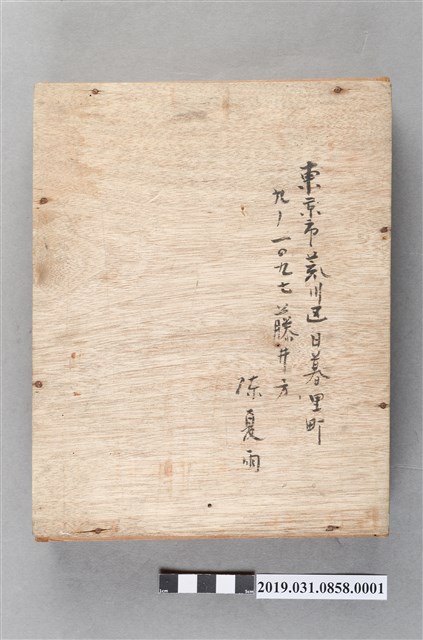 東京市荒川区日暮里町
九ノ一〇九七藤井方
陳夏雨
1cm
5cm
2019.031.0858.0001